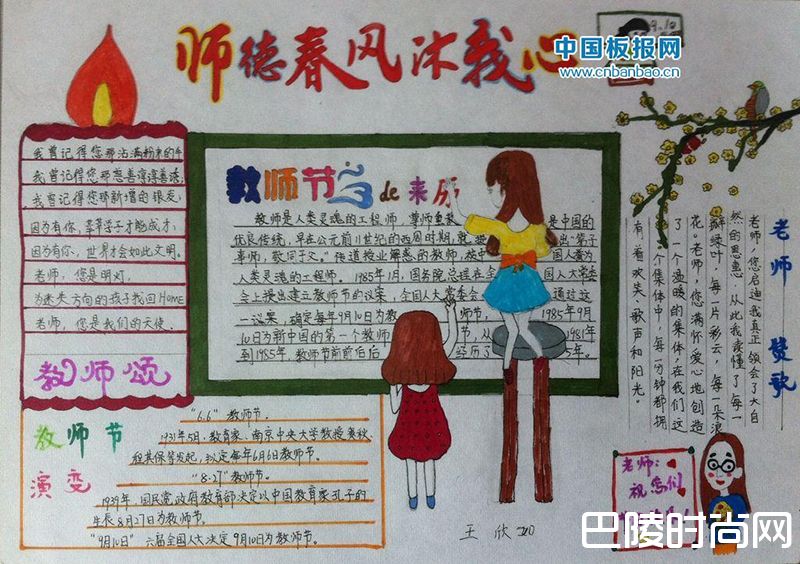 师德春风沐我心
中国板报网
www.cnbanbao.cn
9.10
我曾记得您那沾满粉末的手
我曾记得您那慈善谆谆善诱;
我曾记得您那新增的银发;
因为有你,莘莘学子才能成才;
因为有你,世界才会如此文明。
老师,您是明灯,
为迷失方向的孩子找回HOME
老师,您是我们的天使。
教师颂
教师节de来历
教师是人类灵魂的工程师,尊师重教 是中国的
优良传统,早在公元前11世纪的西周时期,就 提出“弟子
事师,敬同于父。”传道授业解惑的教师,被中 国人誉为
人类灵魂的工程师。1985年1月,国务院总理在全 国人大常委
会上提出建立教师节的议案,全国人大常委会 通过这
一议案,确定每年9月10日为教 师节。 1985年9月
10日为新中国的第一个教师 节,从 1981年
到1985年,教师节前前后后 经历了 5年。
老师赞歌
老师,您启迪我真正领会了大自
然的恩惠,从此我读懂了每一
瓣绿叶,每一片彩云,每一朵浪
花。老师,您满怀爱心地创造
了一个温暖的集体,在我们这
个集体中,每一分钟都拥
有着欢笑、歌声和阳光。
教师节
演变
“6.6”教师节。
1931年5月,教育家、南京中央大学教授
程其保等发起,拟定每年6月6日教师节。
“8·27”教师节。
1939年,国民党政府教育部决定以中国教育家孔子的
生辰8月27日为教师节。
“9月10日”六届全国人大决定9月10日为教师节。
王欣
老师:
祝您们
巴陵时尚网